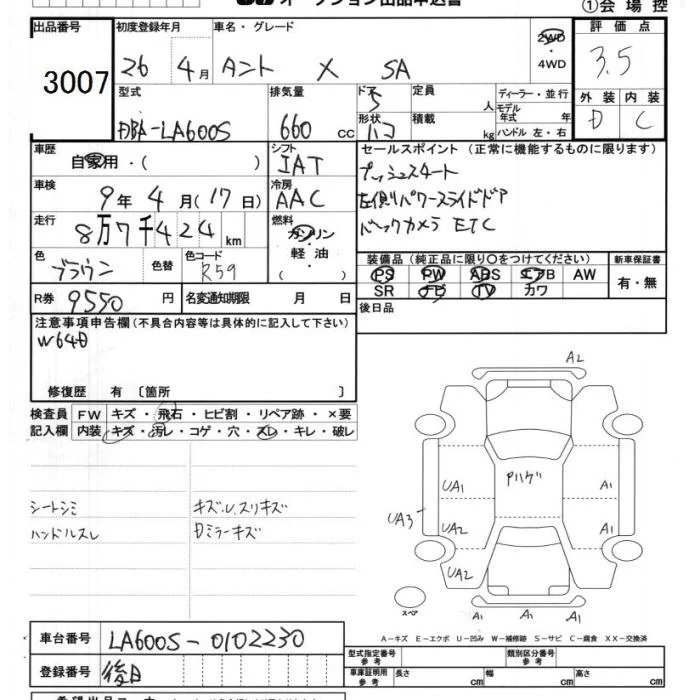 オークション出品申込書
①会場控
出品番号 初度登録年月 車名・グレード 評価点
3007 26 4月 タント X SA 2WD・4WD 3.5
型式 排気量 ドア 定員 ディーラー・並行 外装 内装
DBA-LA600S 660cc 5 人 モデル年式 年 D C
形状 ハコ 積載 kg ハンドル 左・右
車歴 シフト セールスポイント (正常に機能するものに限ります)
自家用・( ) IAT プッシュスタート
車検 冷房 左側パワースライドドア
9年4月(17日) AAC バックカメラ ETC
走行 燃料
8万7千424km ガソリン・軽油・( )
色 色替 色コード 装備品 (純正品に限り○をつけてください) 新車保証書
ブラウン R59 PS PW ABS エアB AW 有・無
SR ナビ TV カワ
R券 9550円 名変通知期限 月 日 後日品
注意事項申告欄(不具合内容等は具体的に記入して下さい)
修復歴 有 〔箇所 〕
A2
検査員 FW キズ・飛石・ヒビ割・リペア跡・×要
記入欄 内装 キズ・汚レ・コゲ・穴・スレ・キレ・破レ
UA1 Pハゲ A1
シートシミ キズ.U.スリキズ
UA3 UA2 A1
ハンドルスレ Dミラーキズ
UA2
スペア A1 A1 A1
A-キズ E-エクボ U-凹み W-補修跡 S-サビ C-腐食 XX-交換済
車台番号 LA600S-0102230
型式指定番号 参考 類別区分番号 参考
登録番号 後日
車庫証明用 参考 長さ cm 幅 cm 高さ cm